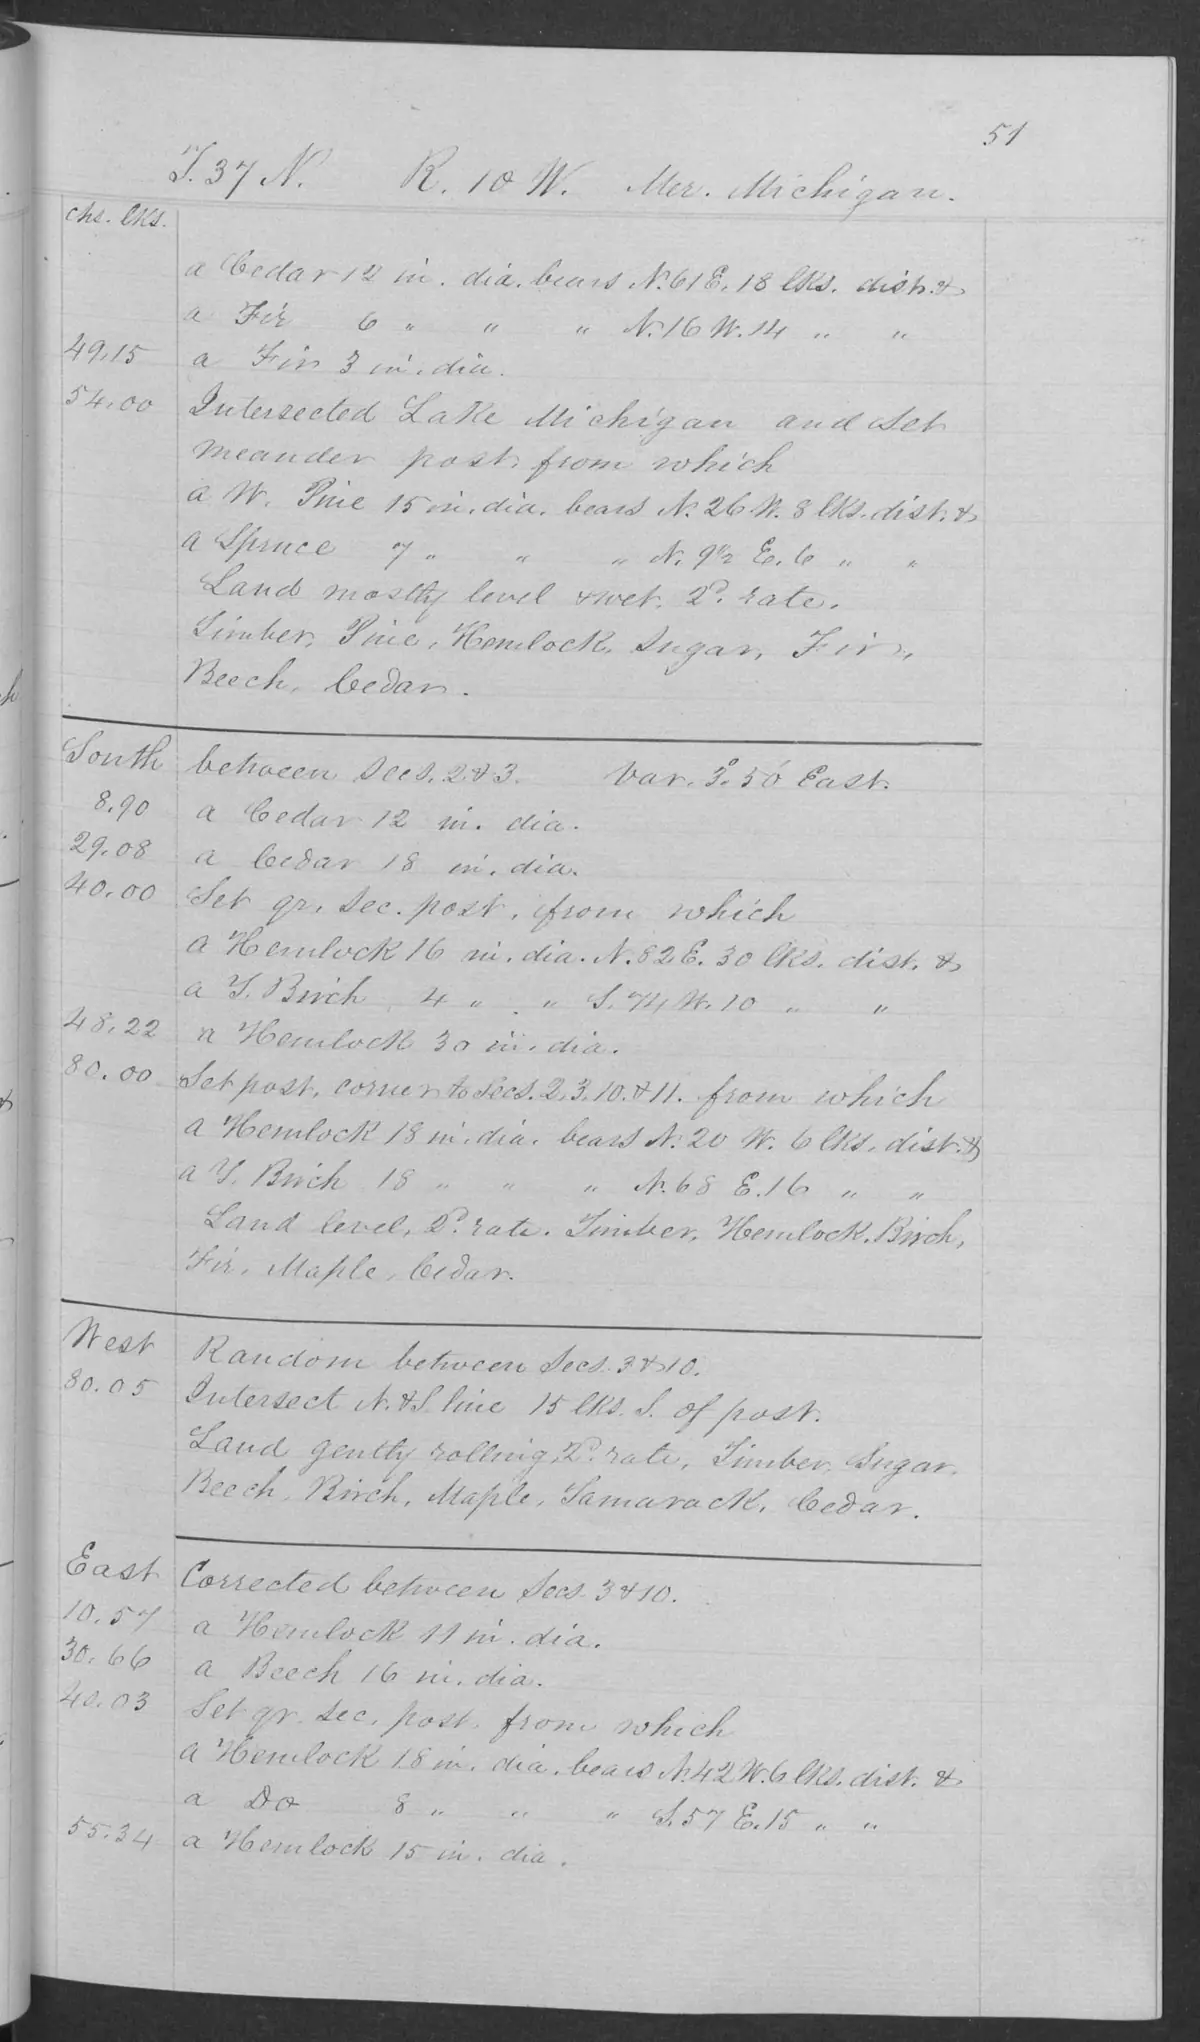 51
T. 37 N. R. 10 W. Mer. Michigan.
chs. lks.
a Cedar 12 in. dia. bears N. 61 E. 18 lks. dist. &
a Fir 6 " " " N. 16 W. 14 " "
49.15 a Fir 3 in. dia.
54.00 Intersected Lake Michigan and Set
meander post, from which
a W. Pine 15 in. dia. bears N. 26 W. 8 lks. dist. &
a Spruce 7 " " " N. 9½ E. 6 " "
Land mostly level & wet. 2d. rate.
Timber, Pine, Hemlock, Sugar, Fir,
Beech, Cedar.
South between Secs. 2 & 3. Var. 3° 50' East.
8.90 a Cedar 12 in. dia.
29.08 a Cedar 18 in. dia.
40.00 Set qr. Sec. post, from which
a Hemlock 16 in. dia. N. 82 E. 30 lks. dist. &
a Y. Birch 4 " " S. 74 W. 10 " "
48.22 a Hemlock 30 in. dia.
80.00 Set post, corner to Secs. 2, 3, 10, & 11. from which
a Hemlock 18 in. dia. bears N. 20 W. 6 lks. dist. &
a Y. Birch 18 " " " N. 68 E. 16 " "
Land level, 2d. rate. Timber, Hemlock, Birch,
Fir, Maple, Cedar.
West Random between Secs. 3 & 10.
80.05 Intersect N. & S. line 15 lks. S. of post.
Land gently rolling, 2d. rate, Timber, Sugar,
Beech, Birch, Maple, Tamarack, Cedar.
East Corrected between Secs. 3 & 10.
10.57 a Hemlock 11 in. dia.
30.66 a Beech 16 in. dia.
40.03 Set qr. Sec. post, from which
a Hemlock 18 in. dia. bears N. 42 W. 6 lks. dist. &
a Do 8 " " " S. 57 E. 15 " "
55.34 a Hemlock 15 in. dia.